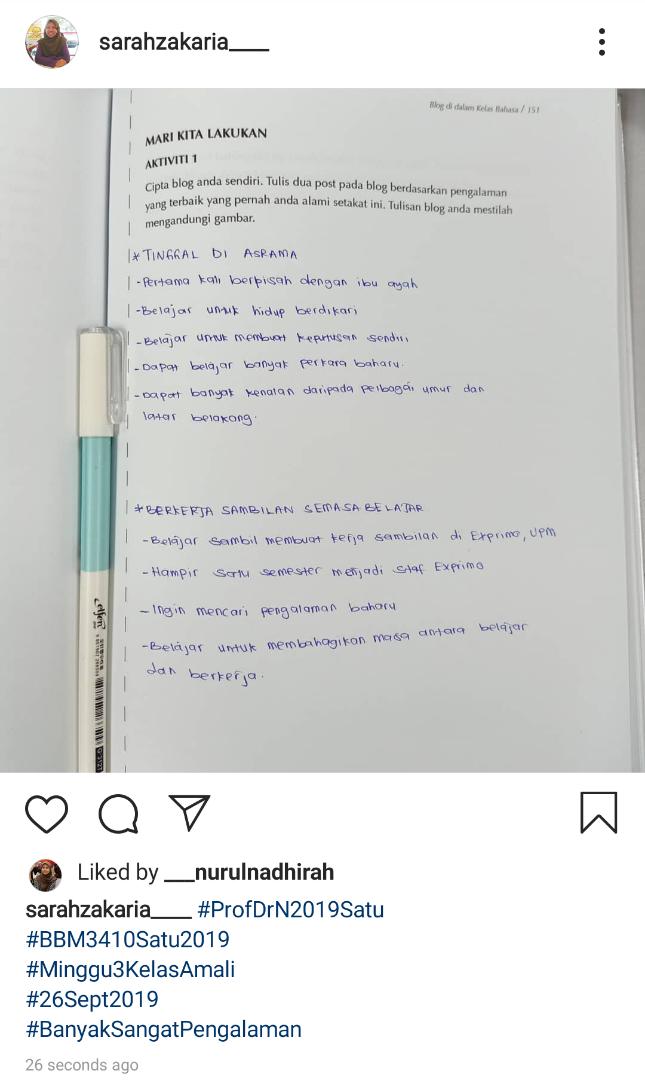 sarahzakaria____
Blog di dalam Kelas Bahasa / 151
MARI KITA LAKUKAN
AKTIVITI 1
Cipta blog anda sendiri. Tulis dua post pada blog berdasarkan pengalaman
yang terbaik yang pernah anda alami setakat ini. Tulisan blog anda mestilah
mengandungi gambar.
* TINGGAL DI ASRAMA
- Pertama kali berpisah dengan ibu ayah
- Belajar untuk hidup berdikari
- Belajar untuk membuat keputusan sendiri
- Dapat belajar banyak perkara baharu.
- Dapat banyak kenalan daripada pelbagai umur dan
latar belakang.
* BERKERJA SAMBILAN SEMASA BELAJAR
- Belajar sambil membuat kerja sambilan di Exprimo, UPM
- Hampir satu semester menjadi staf Exprimo
- Ingin mencari pengalaman baharu
- Belajar untuk membahagikan masa antara belajar
dan berkerja.
Liked by ___nurulnadhirah
sarahzakaria____ #ProfDrN2019Satu
#BBM3410Satu2019
#Minggu3KelasAmali
#26Sept2019
#BanyakSangatPengalaman
26 seconds ago